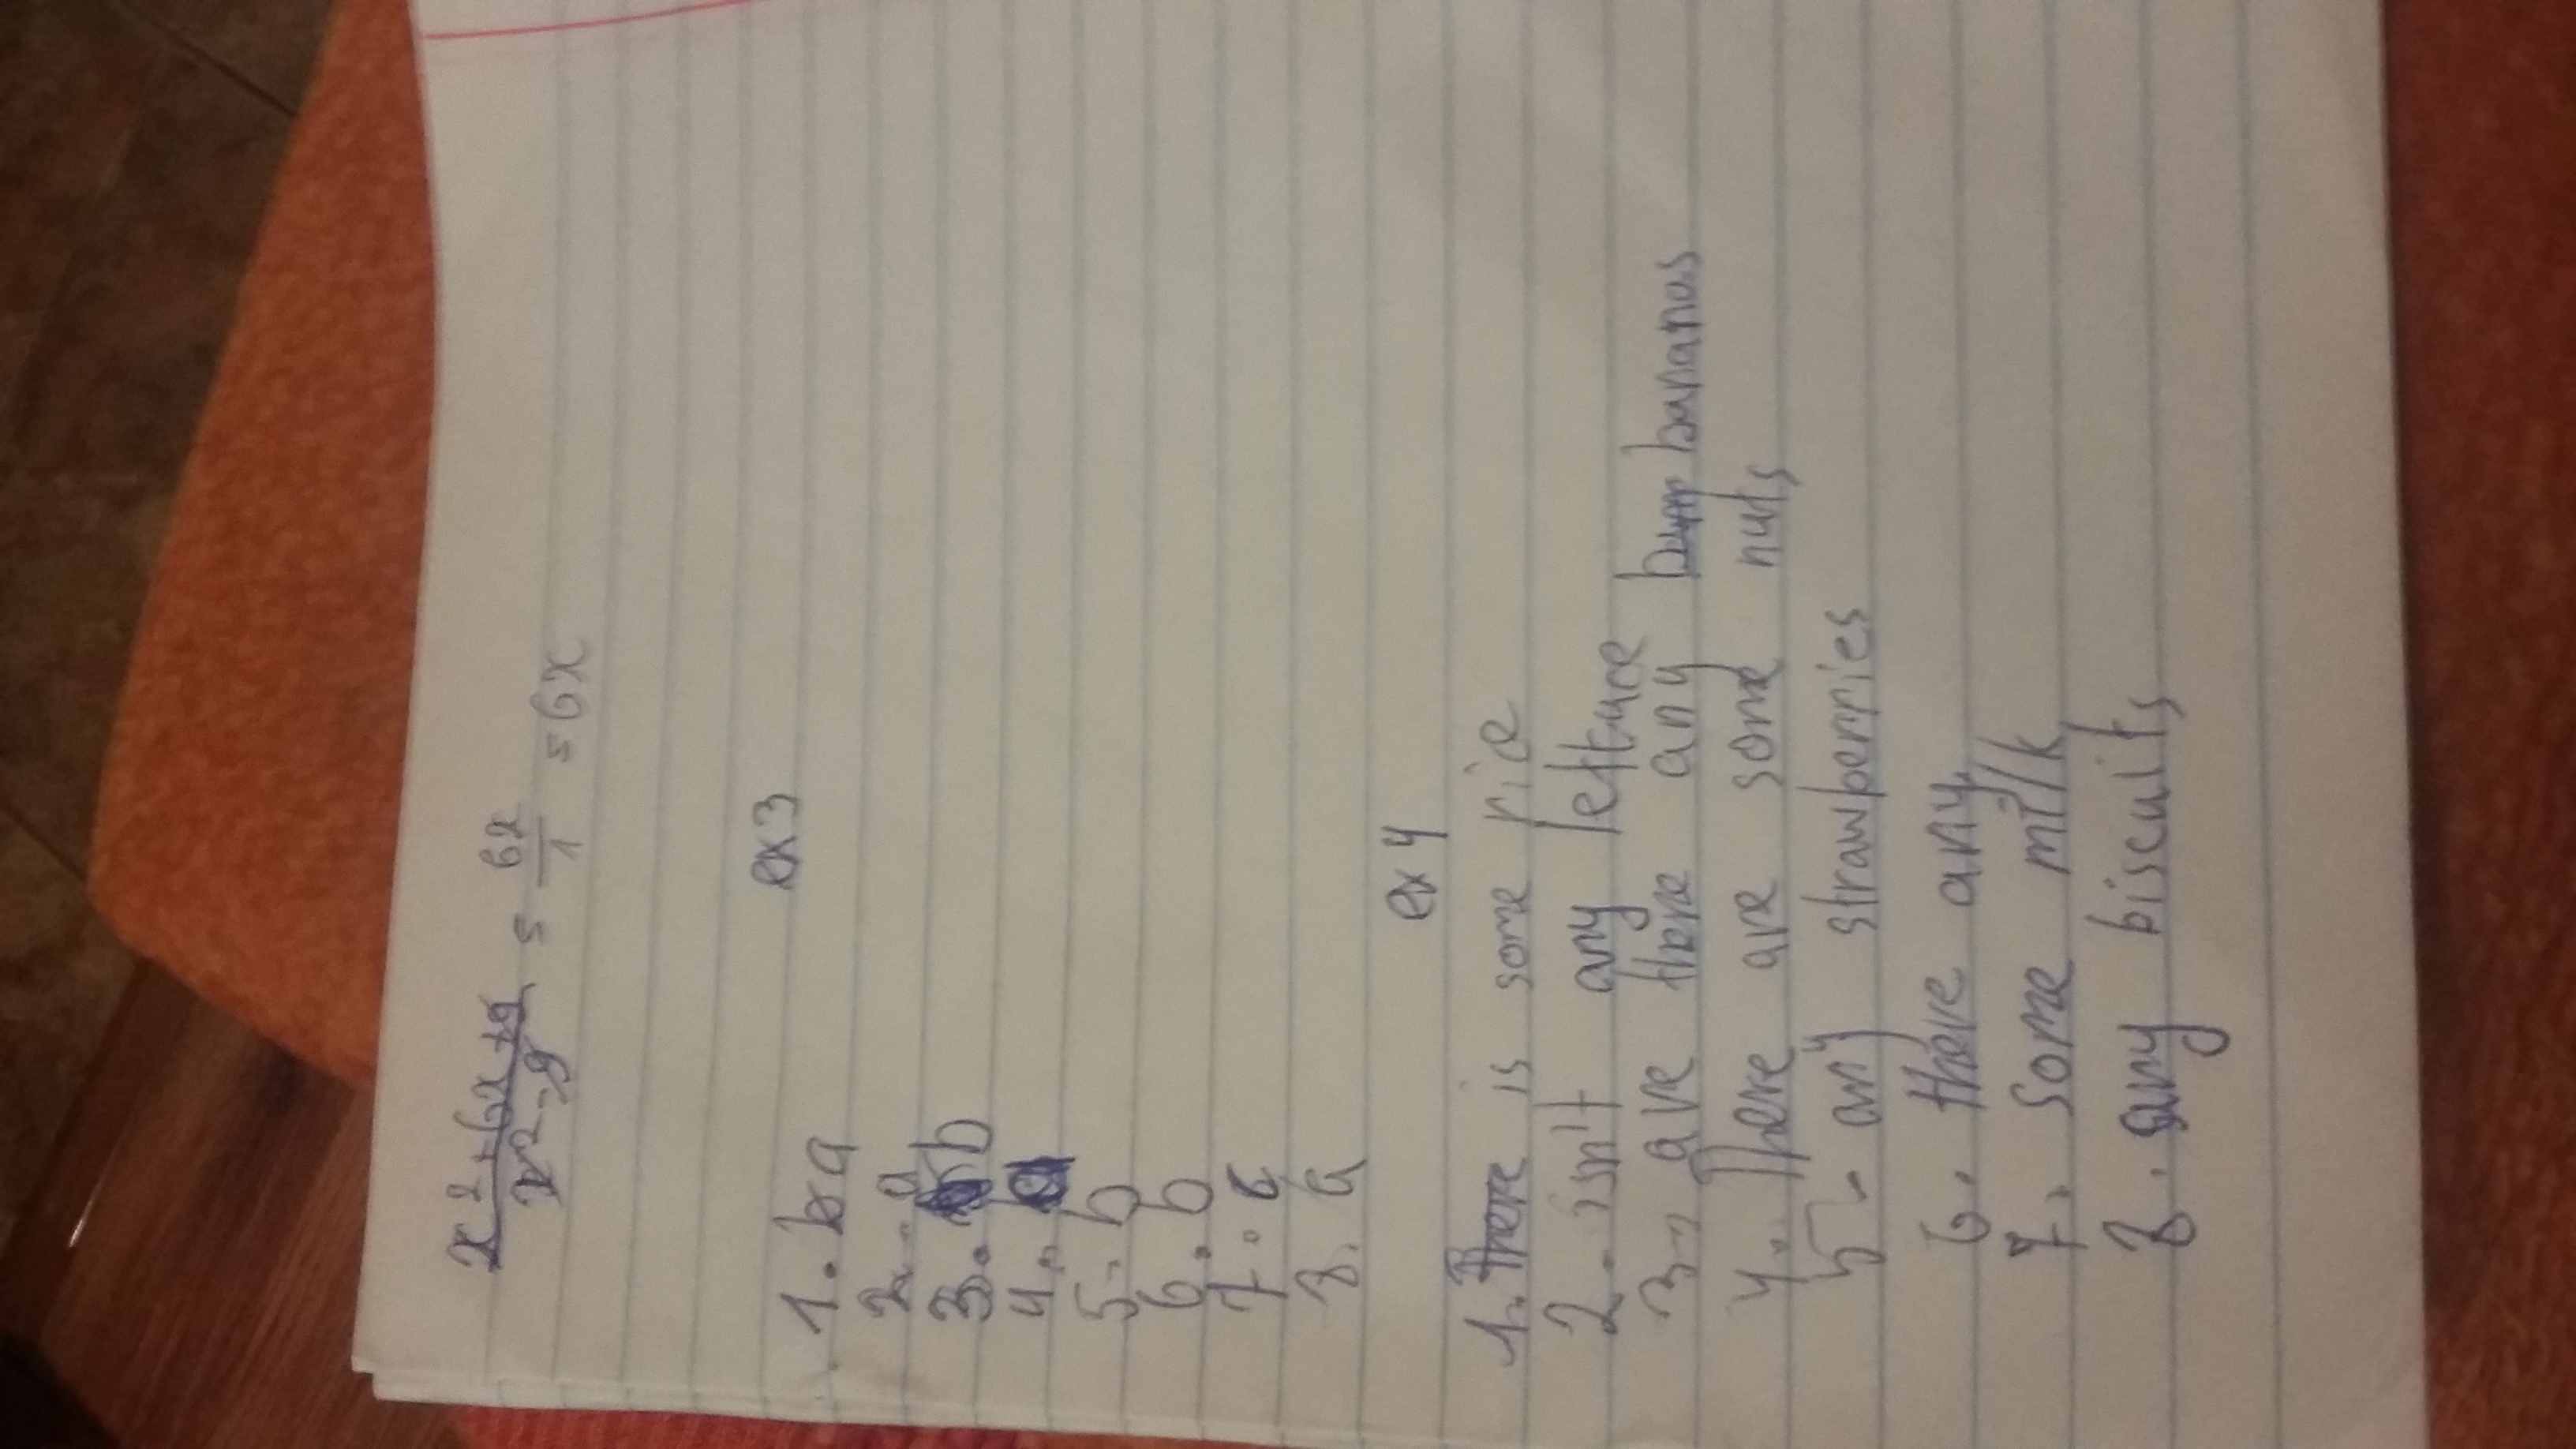 x² + 6x + 9 / x² - 9 = 6x / 1 = 6x
ex 3
1. a
2. a
3. b
4.
5. b
6. b
7. c
8. a
ex 4
1. There is some rice
2. isn't any lettuce
3. are there any bananas
4. There are some nuts
5. any strawberries
6. there any
7. some milk
8. any biscuits